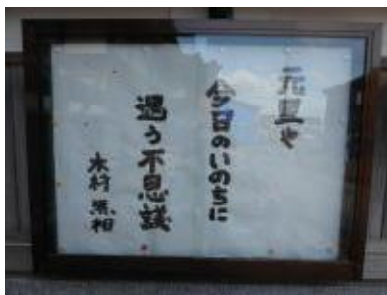 元旦や
今日のいのちに
遇う不思議
木村無相